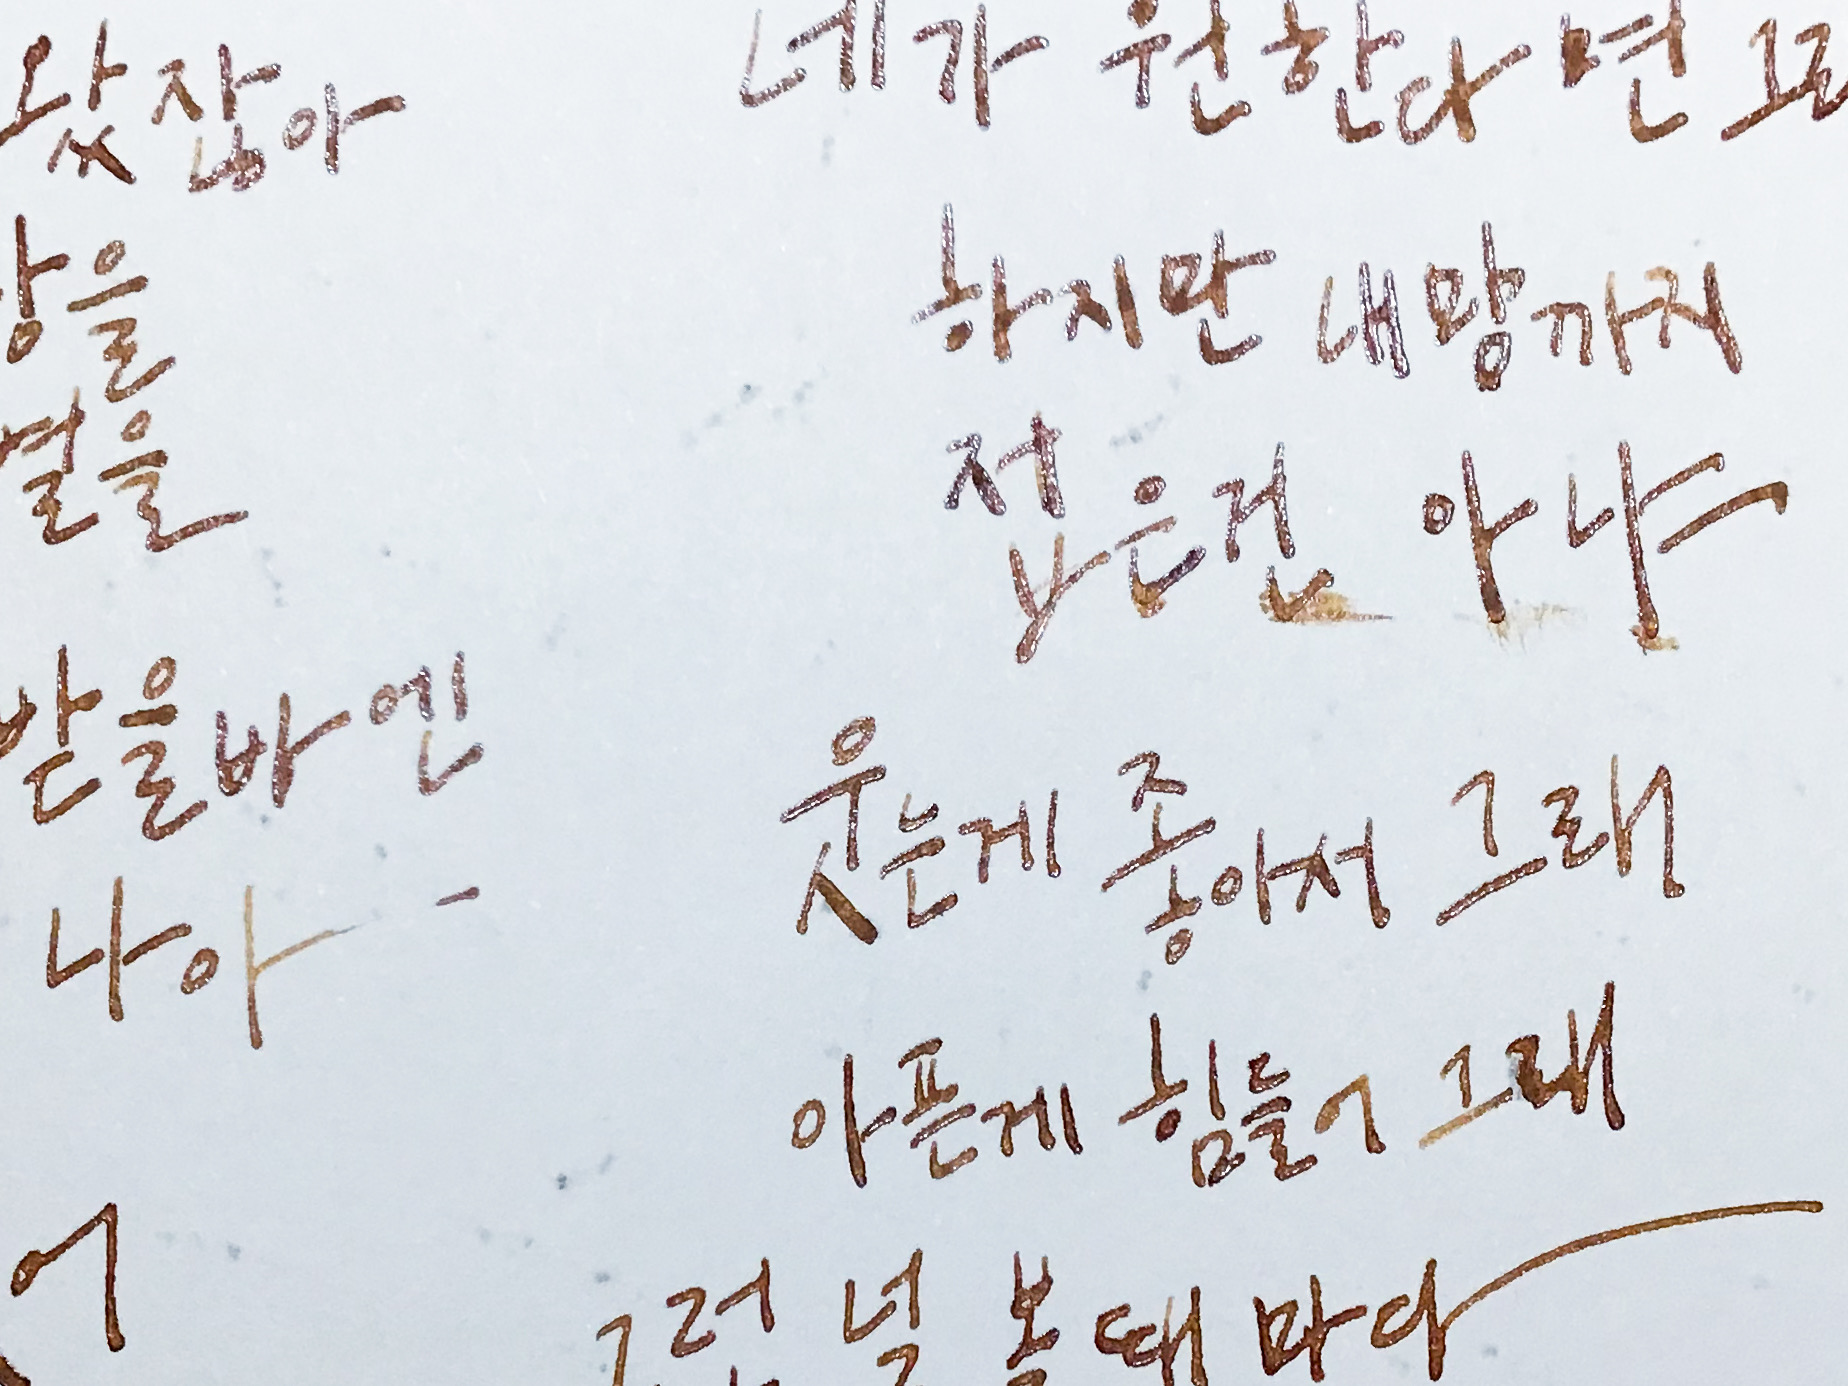 왔잖아
을
을
받을바엔
나아
어
네가 원한다면
하지만 내맘까지
접은건 아냐
웃는게 좋아서 그래
아픈게 힘들어 그래
그런 널 볼때마다